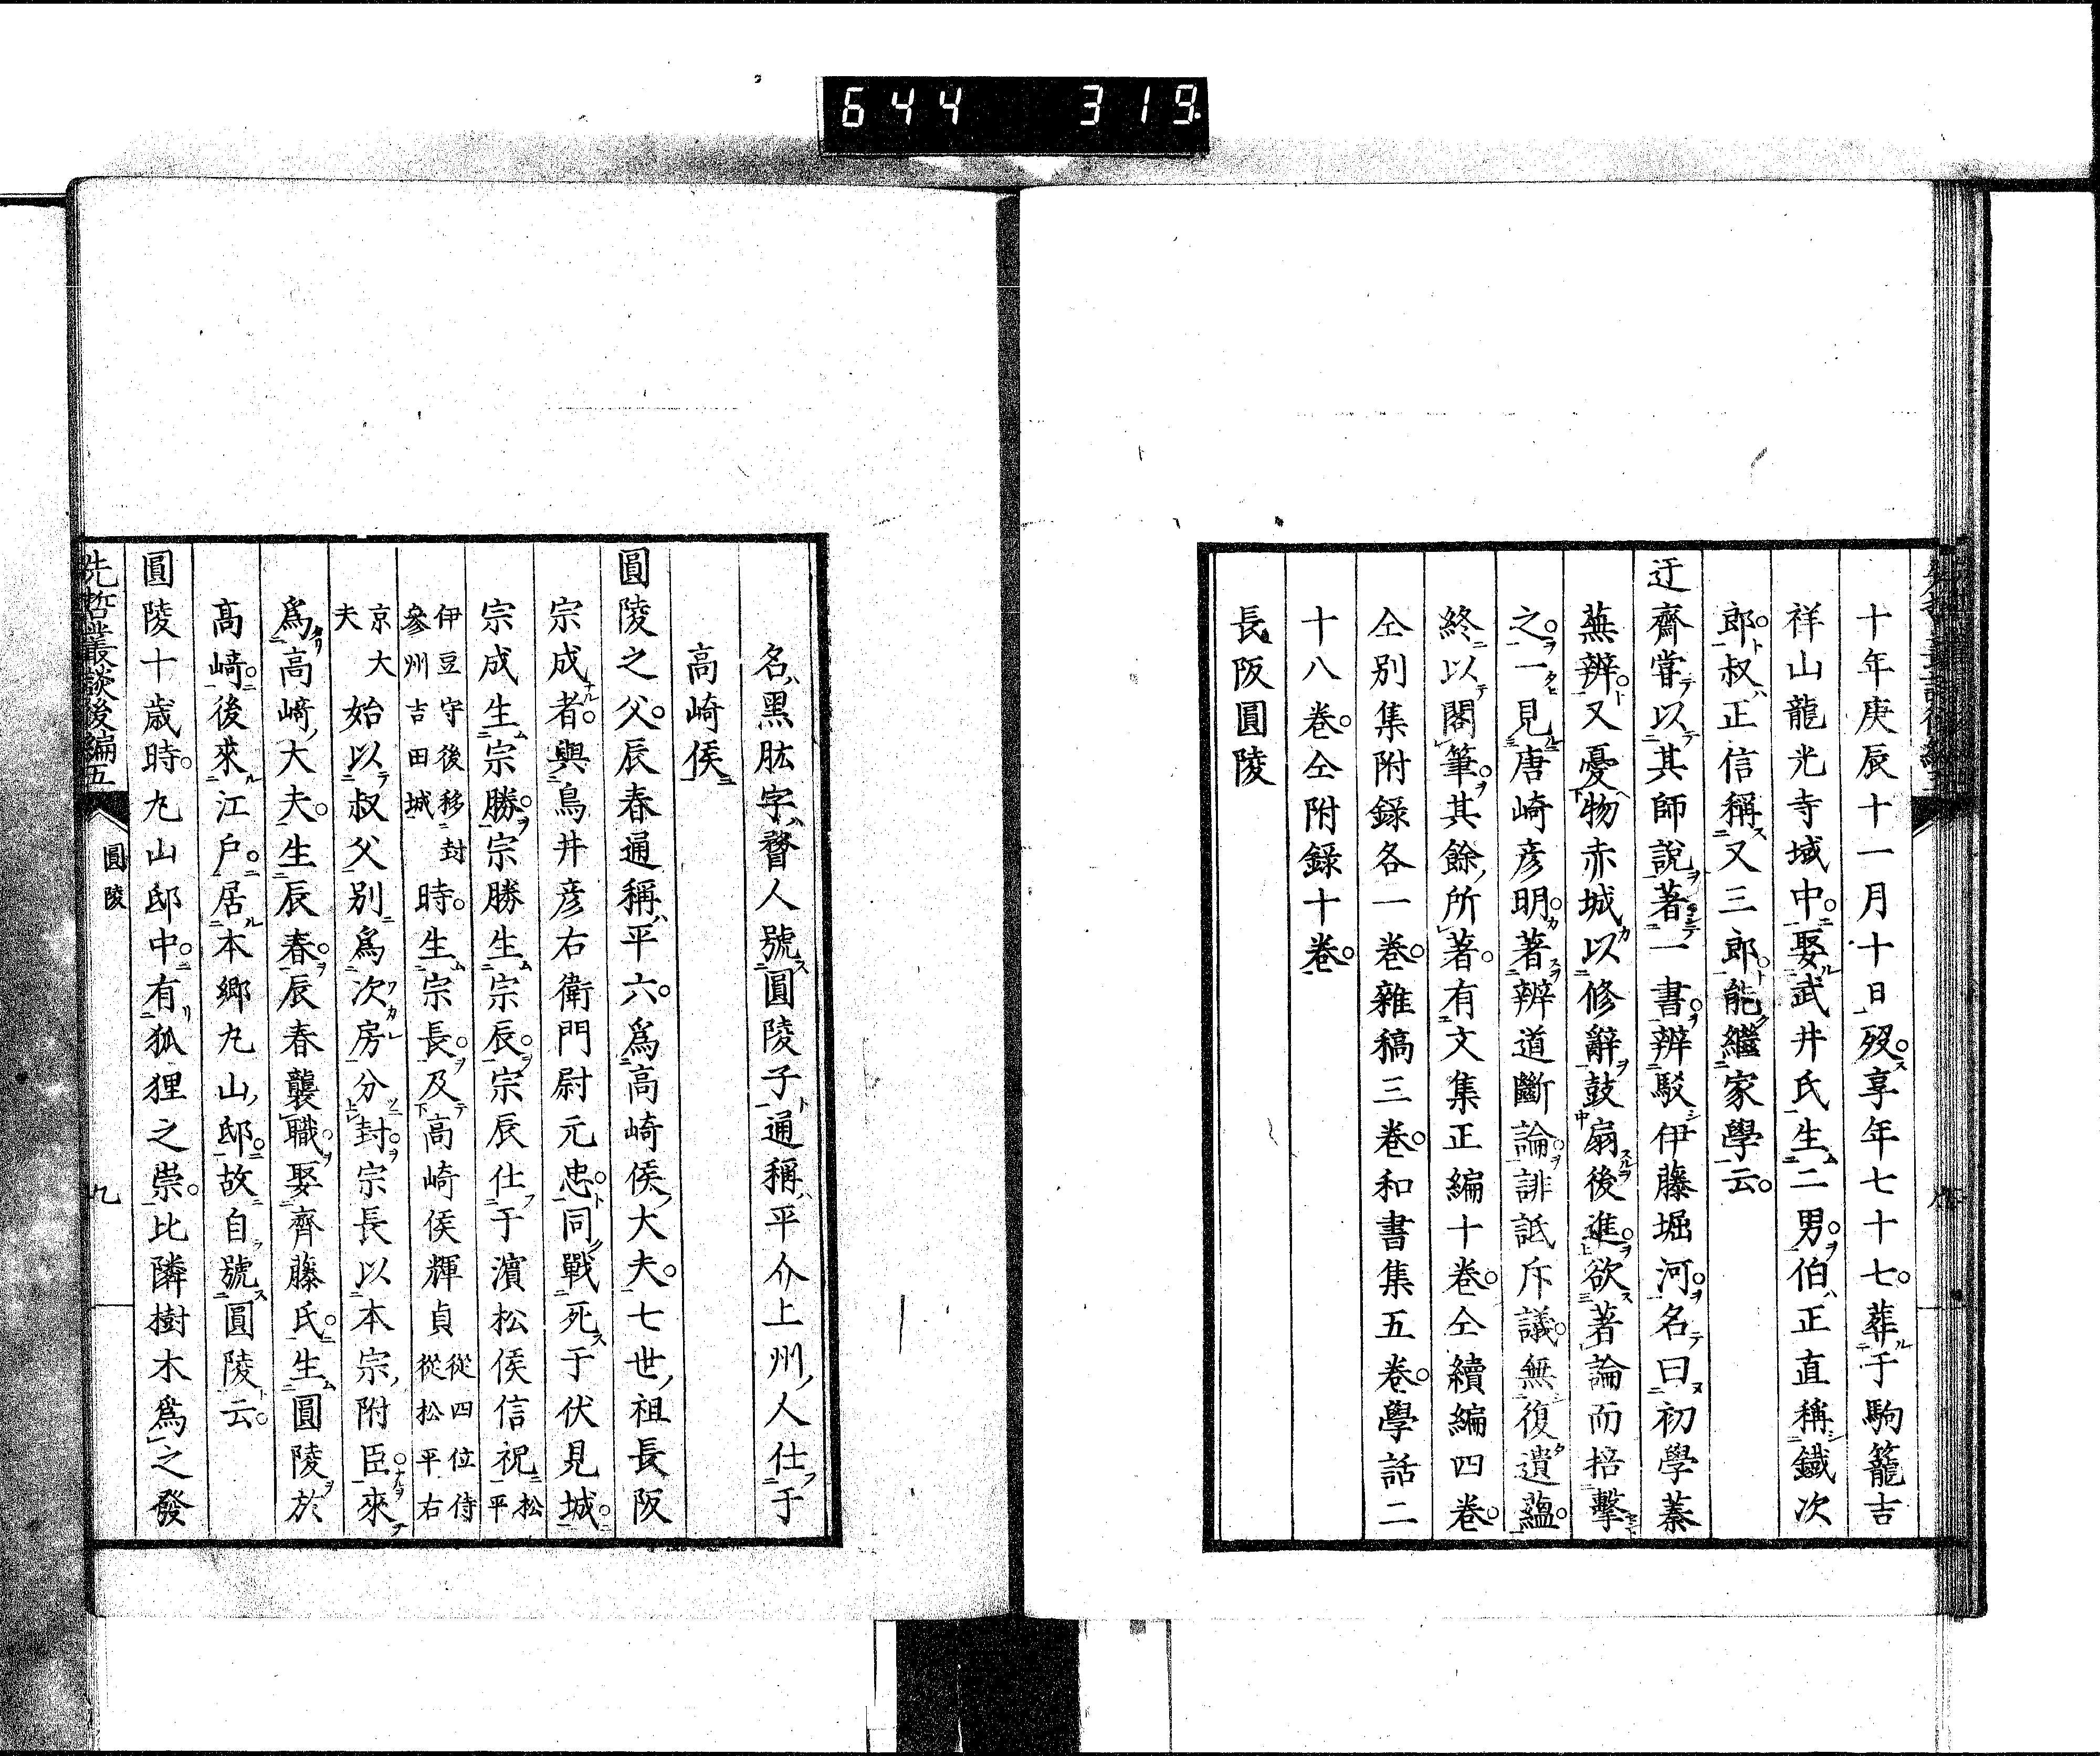 644 319
十年庚辰十一月十日歿享年七十七葬于駒籠吉
祥山龍光寺域中娶武井氏生二男伯正直稱鐵次
郎叔正信稱又三郎能繼家學云
迂齋嘗以其師說著一書辨駁伊藤堀河名曰初學蓁
蕪辨又憂物赤城以修辭鼓扇後進欲著論而掊擊
之一見唐崎彦明著辨道斷論誹詆斥議無復遺蘊
終以閣筆其餘所著有文集正編十卷仝續編四卷
仝別集附錄各一卷雜稿三卷和書集五卷學話二
十八卷仝附錄十卷
長阪圓陵
名黑肱字瞀人號圓陵子通稱平介上州人仕于
高崎侯
圓陵之父辰春通稱平六爲高崎侯大夫七世祖長阪
宗成者與鳥井彦右衛門尉元忠同戰死于伏見城
宗成生宗勝宗勝生宗辰宗辰仕于濱松侯信祝松平
伊豆守後移封參州吉田城時生宗長及高崎侯輝貞從四位侍從松平右
京大夫始以叔父別爲次房分封宗長以本宗附臣來
爲高崎大夫生辰春辰春襲職娶齊藤氏生圓陵於
高崎後來江戶居本鄉丸山邸故自號圓陵云
圓陵十歲時丸山邸中有狐狸之祟比隣樹木爲之發
先哲叢談後編五
圓陵
九